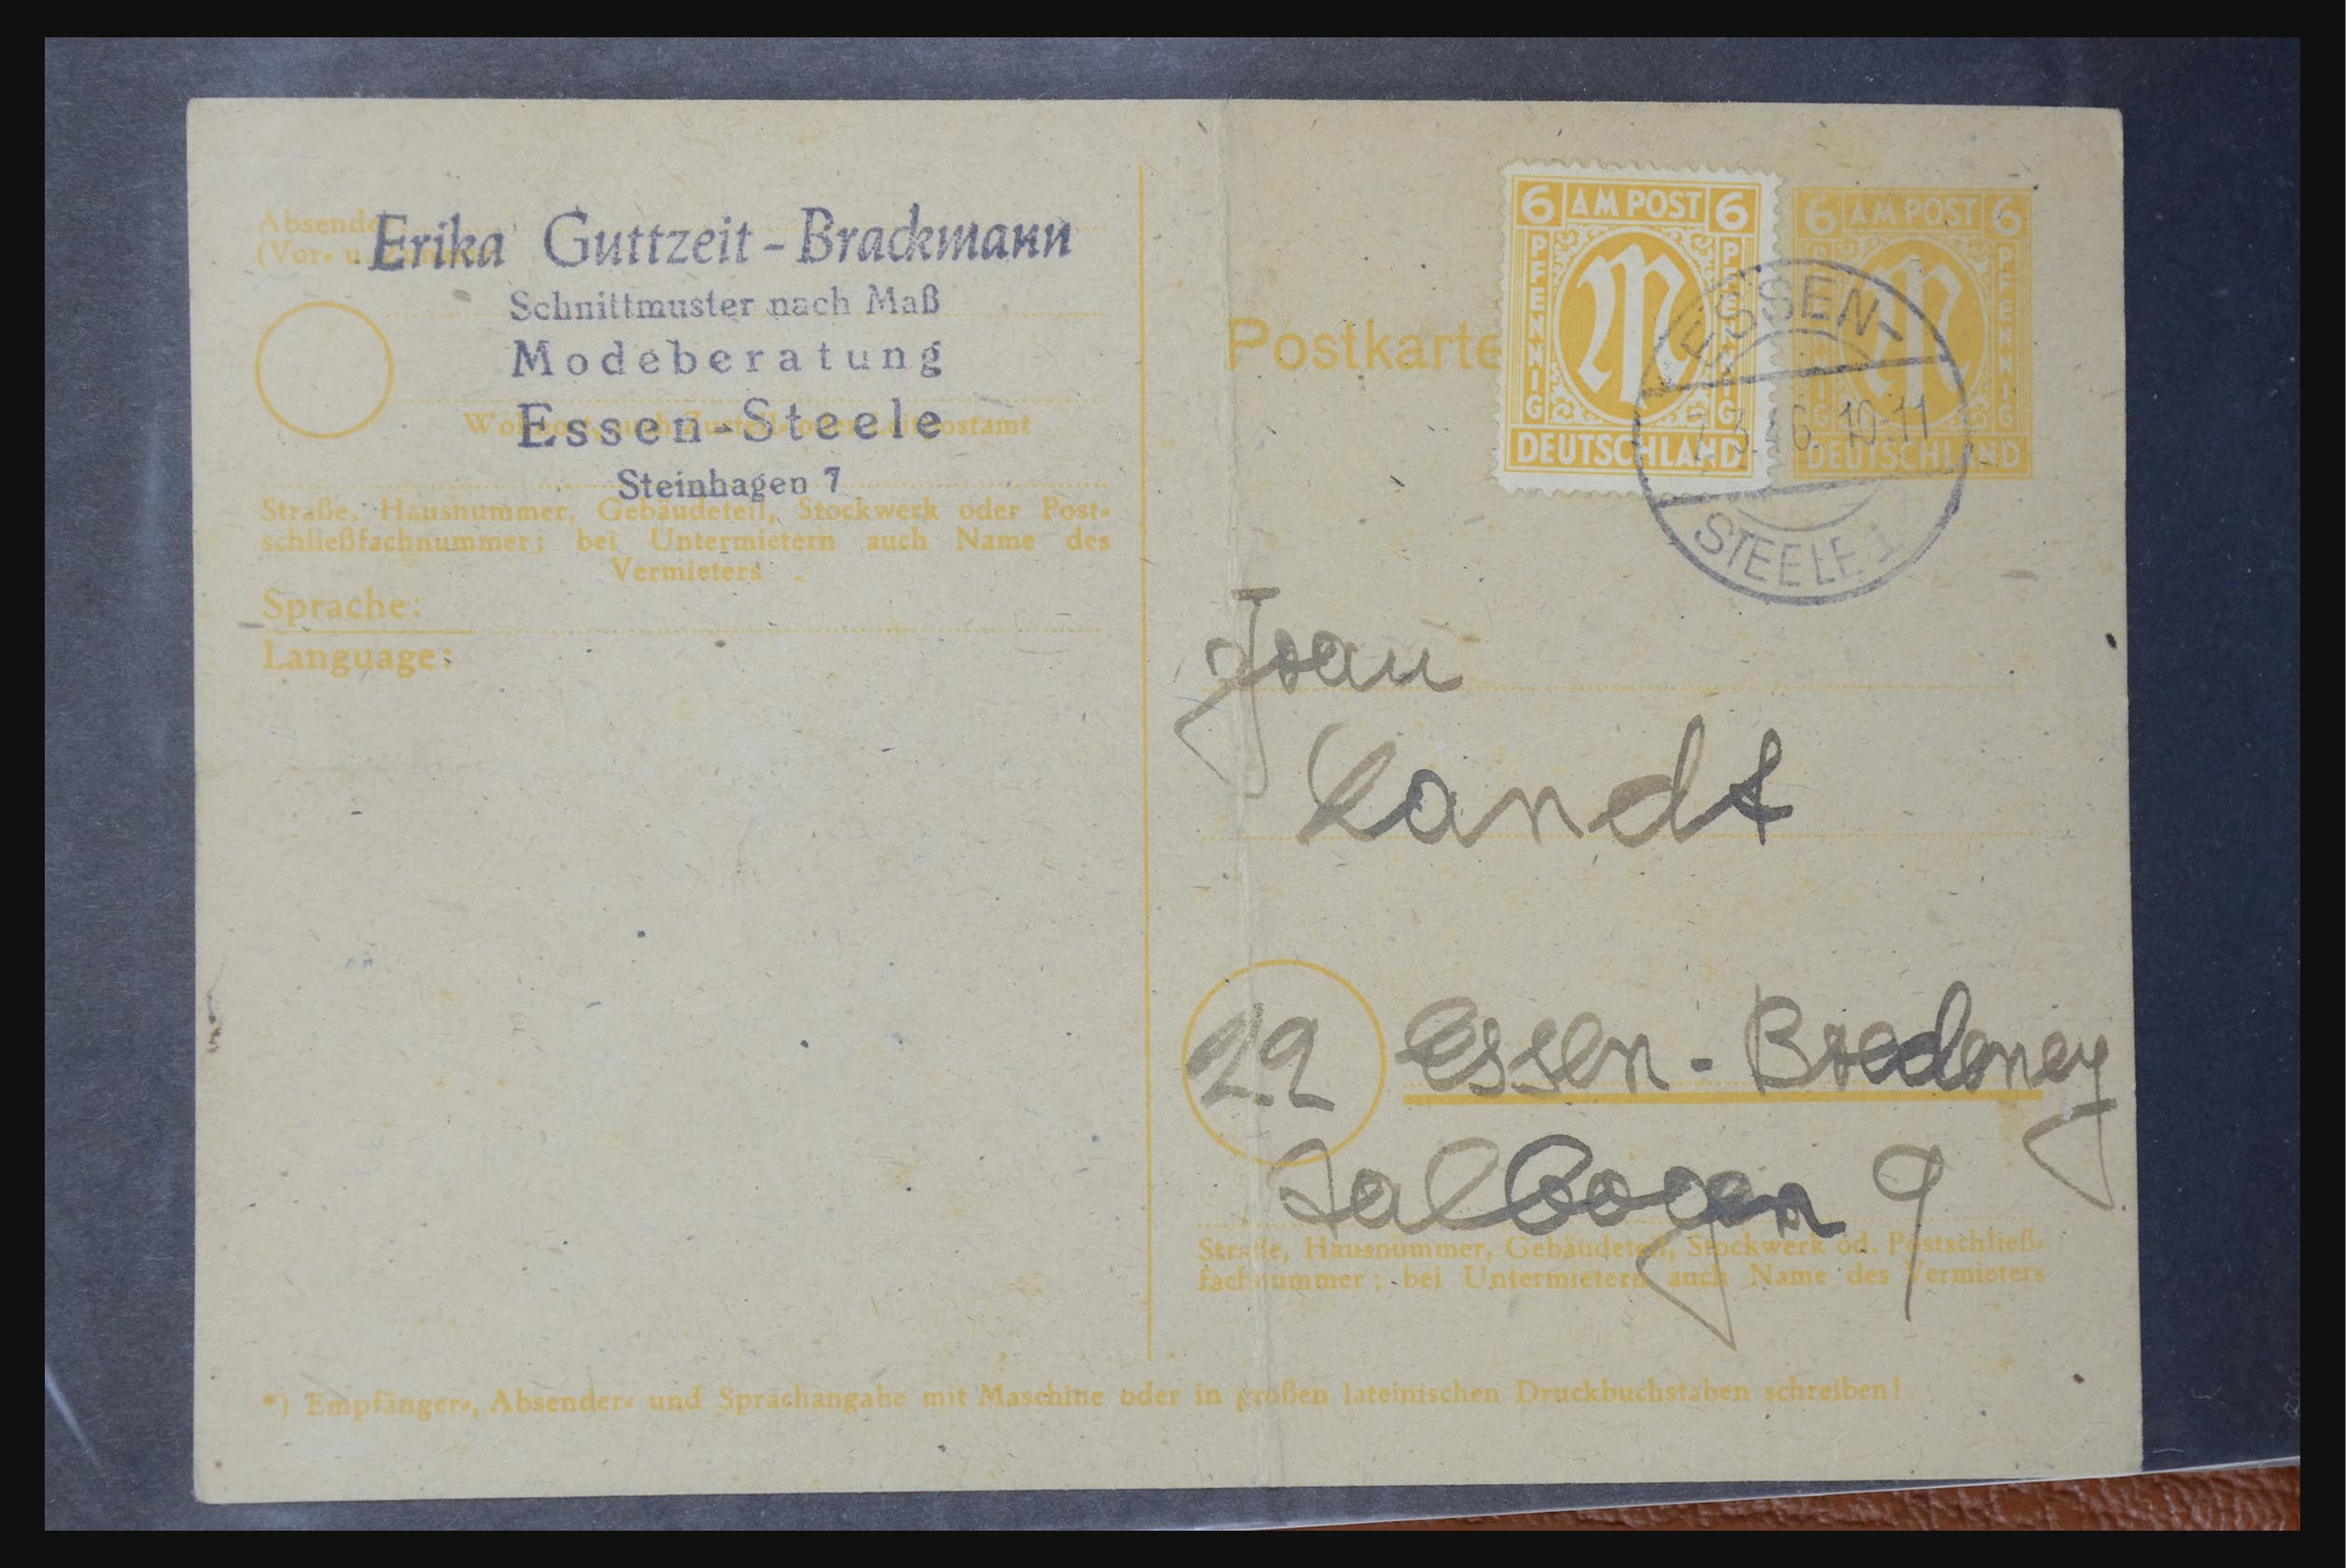 Absende
(Vor- u.
Erika Guttzeit-Brackmann
Schnittmuster nach Maß
Modeberatung
Essen-Steele
Steinhagen 7
Straße, Hausnummer, Gebäudeteil, Stockwerk oder Post-
schließfachnummer; bei Untermietern auch Name des
Vermieters
Sprache:
Language:
Postkarte
6 AM POST 6
PFENNIG PFENNIG
DEUTSCHLAND
6 AM POST 6
PFENNIG PFENNIG
DEUTSCHLAND
ESSEN-
10-11
STEELE 1
Landt
22 Essen-Bredeney
9
Straße, Hausnummer, Gebäudeteil, Stockwerk od. Postschließ-
fachnummer; bei Untermietern auch Name des Vermieters
*) Empfänger-, Absender- und Sprachangabe mit Maschine oder in großen lateinischen Druckbuchstaben schreiben!